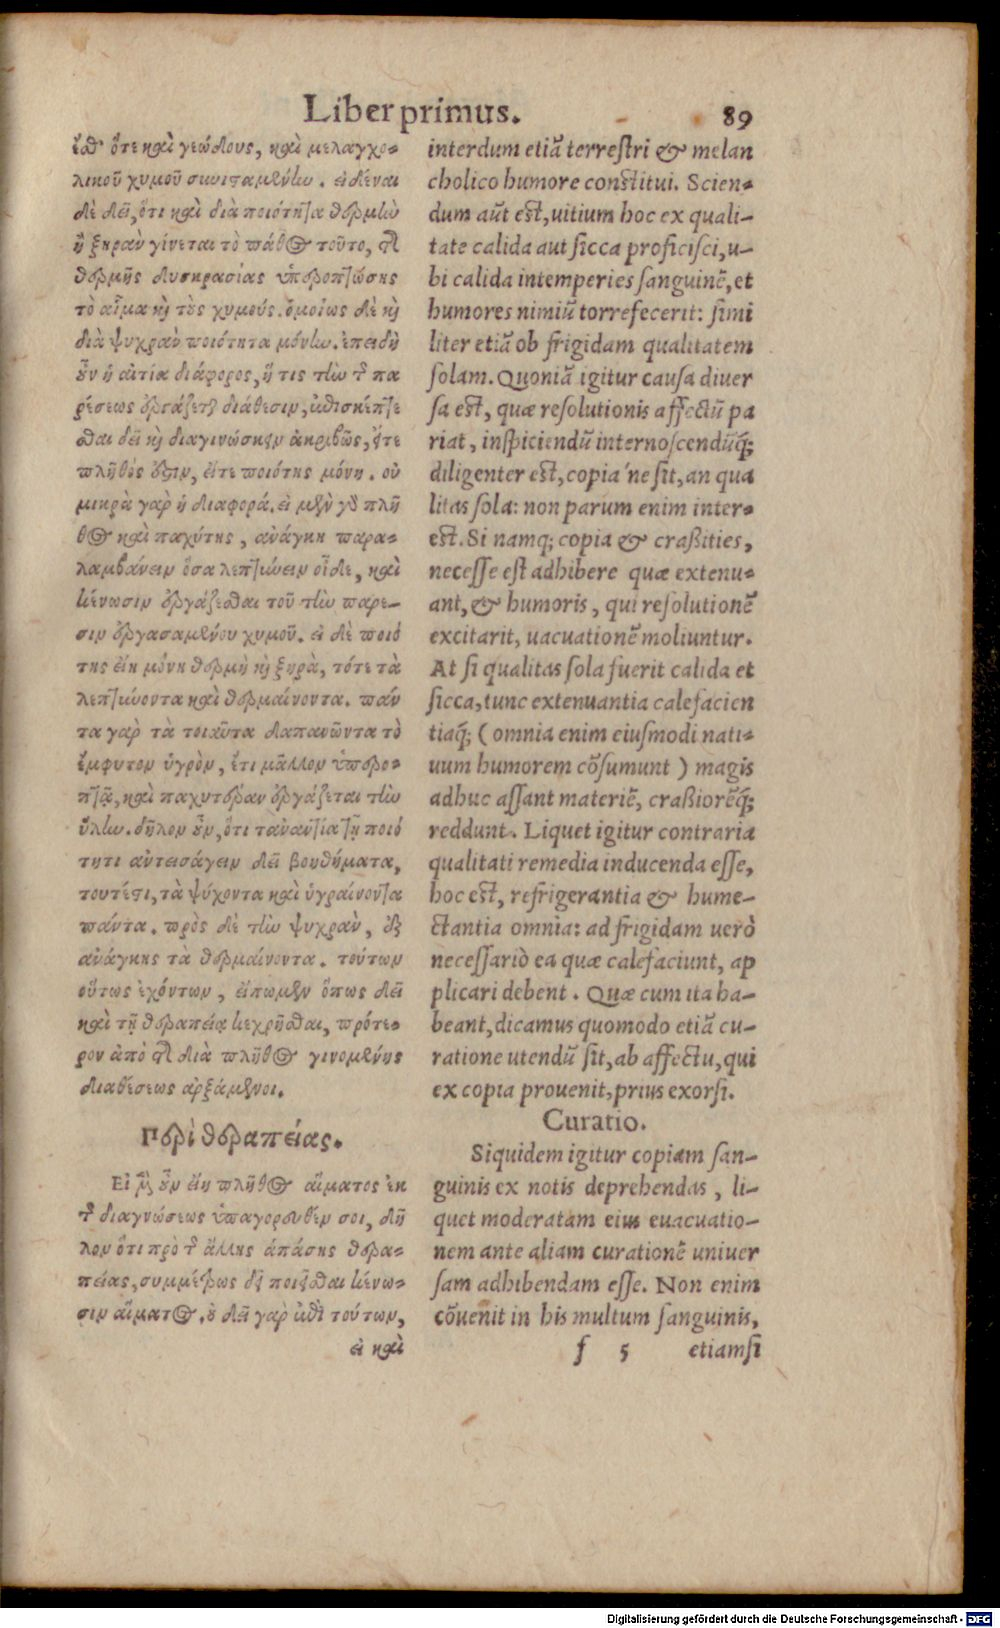 Liber primus. 89
ἔσθ᾽ ὅτε καὶ γεώδους, καὶ μελαγχο-
λικοῦ χυμοῦ συνισταμένην. εἰδέναι
δὲ δεῖ, ὅτι καὶ διὰ ποιότητα θερμὴν
ἢ ξηρὰν γίνεται τὸ πάθος τοῦτο, τῆς
θερμῆς δυσκρασίας ὑπεροπτώσης
τὸ αἷμα κὴ τοὺς χυμούς. ὁμοίως δὲ κὴ
διὰ ψυχρὰν ποιότητα μόνην. ἐπειδὴ
οὖν ἡ αἰτία διάφορος, ἥ τις τὴν τῆς πα
ρέσεως ἐργάζεται διάθεσιν, ἐπισκέπτε
σθαι δεῖ κὴ διαγινώσκειν ἀκριβῶς, εἴτε
πλῆθός ἐστιν, εἴτε ποιότης μόνη. οὐ
μικρὰ γὰρ ἡ διαφορά. εἰ μὲν γὰρ πλῆ
θος καὶ παχύτης, ἀνάγκη παρα-
λαμβάνειν ὅσα λεπτύνειν οἶδε, καὶ
κένωσιν ἐργάζεσθαι τοῦ τὴν πάρε-
σιν ἐργασαμένου χυμοῦ. εἰ δὲ ποιό
της εἴη μόνη θερμὴ κὴ ξηρὰ, τότε τὰ
λεπτύνοντα καὶ θερμαίνοντα. πάν
τα γὰρ τὰ τοιαῦτα δαπανῶντα τὸ
ἔμφυτον ὑγρὸν, ἔτι μᾶλλον ὑπερο-
πτᾷ, καὶ παχυτέραν ἐργάζεται τὴν
ὕλην. δῆλον οὖν, ὅτι τἀναντία τῇ ποιό
τητι ἀντεισάγειν δεῖ βοηθήματα,
τουτέστι, τὰ ψύχοντα καὶ ὑγραίνοντα
πάντα. πρὸς δὲ τὴν ψυχρὰν, ἐξ
ἀνάγκης τὰ θερμαίνοντα. τούτων
οὕτως ἐχόντων, εἴπωμεν ὅπως δεῖ
καὶ τῇ θεραπείᾳ κεχρῆσθαι, πρότε-
ρον ἀπὸ τῆς διὰ πλῆθος γινομένης
διαθέσεως ἀρξάμενοι.
Περὶ θεραπείας.
Εἰ μὲν οὖν εἴη πλῆθος αἵματος ἐκ
τῆς διαγνώσεως ὑπαγορευθέν σοι, δῆ
λον ὅτι πρὸ τῆς ἄλλης ἁπάσης θερα-
πείας, συμμέτρως δεῖ ποιεῖσθαι κένω-
σιν αἵματος. οὐ δεῖ γὰρ ἐπὶ τούτων,
εἰ καὶ
interdum etiã terrestri & melan
cholico humore constitui. Scien-
dum aũt est, uitium hoc ex quali-
tate calida aut sicca proficisci, u-
bi calida intemperies sanguinẽ, et
humores nimiũ torrefecerit: simi
liter etiã ob frigidam qualitatem
solam. Quoniã igitur causa diuer
sa est, quæ resolutionis affectũ pa
riat, inspiciendũ internoscendũq́;
diligenter est, copia ́ne sit, an qua
litas sola: non parum enim inter-
est. Si namq; copia & craßities,
necesse est adhibere quæ extenu-
ant, & humoris, qui resolutionẽ
excitarit, uacuationẽ moliuntur.
At si qualitas sola fuerit calida et
sicca, tunc extenuantia calefacien
tiaq́; ( omnia enim eiusmodi nati-
uum humorem cõsumunt ) magis
adhuc assant materiẽ, craßiorẽq́;
reddunt. Liquet igitur contraria
qualitati remedia inducenda esse,
hoc est, refrigerantia & hume-
ctantia omnia: ad frigidam uerò
necessariò ea quæ calefaciunt, ap
plicari debent. Quæ cum ita ha-
beant, dicamus quomodo etiã cu-
ratione utendũ sit, ab affectu, qui
ex copia prouenit, prius exorsi.
Curatio.
Siquidem igitur copiam san-
guinis ex notis deprehendas, li-
quet moderatam eius euacuatio-
nem ante aliam curationẽ uniuer
sam adhibendam esse. Non enim
cõuenit in his multum sanguinis,
f 5 etiamsi
Digitalisierung gefördert durch die Deutsche Forschungsgemeinschaft - DFG